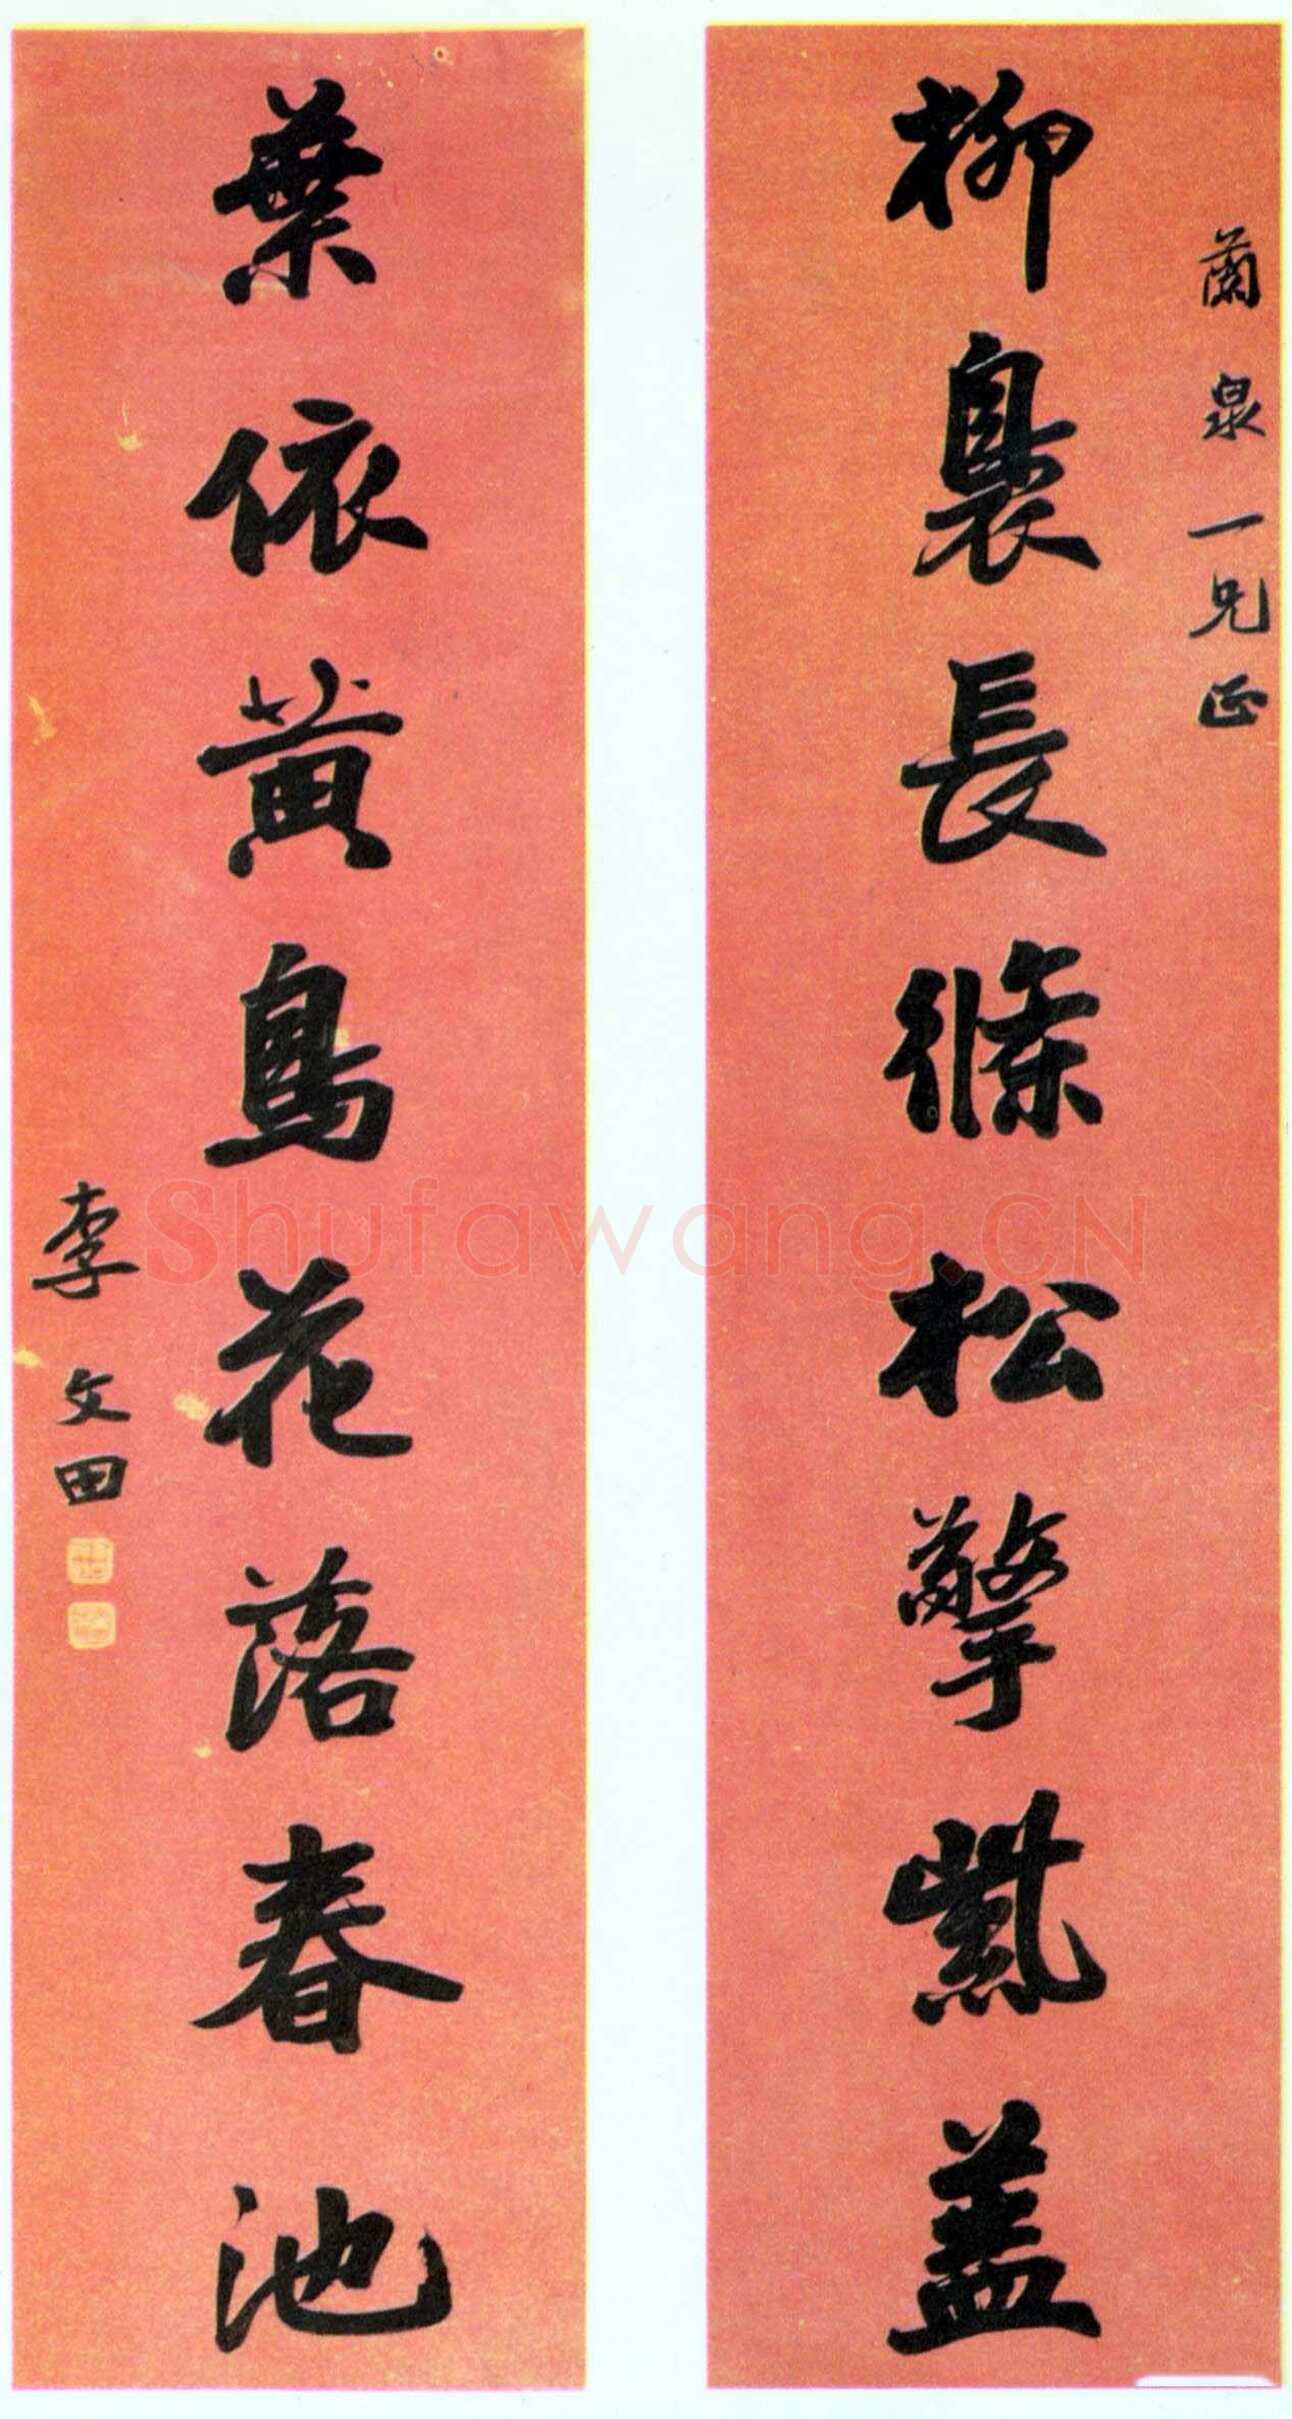 蘭泉一兄正
柳裊長條松擎紫蓋
葉依黃鳥花落春池
李文田
Shufawang.CN